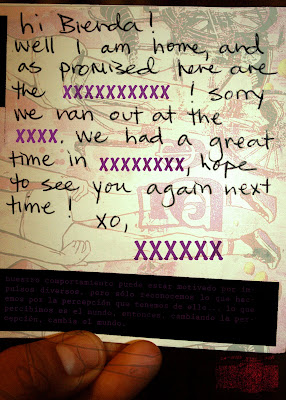 hi Bienda!
well I am home, and
as promised here are
the XXXXXXXXXX ! sorry
we ran out at the
XXXX. we had a great
time in XXXXXXXX, hope
to see you again next
time!
xo,
XXXXXX
Nuestro comportamiento puede estar motivado por im-
pulsos diversos, pero sólo reconocemos lo que hac-
emos por la percepción que tenemos de ello... lo que
percibimos es el mundo, entonces, cambiando la per-
cepción, cambia el mundo.